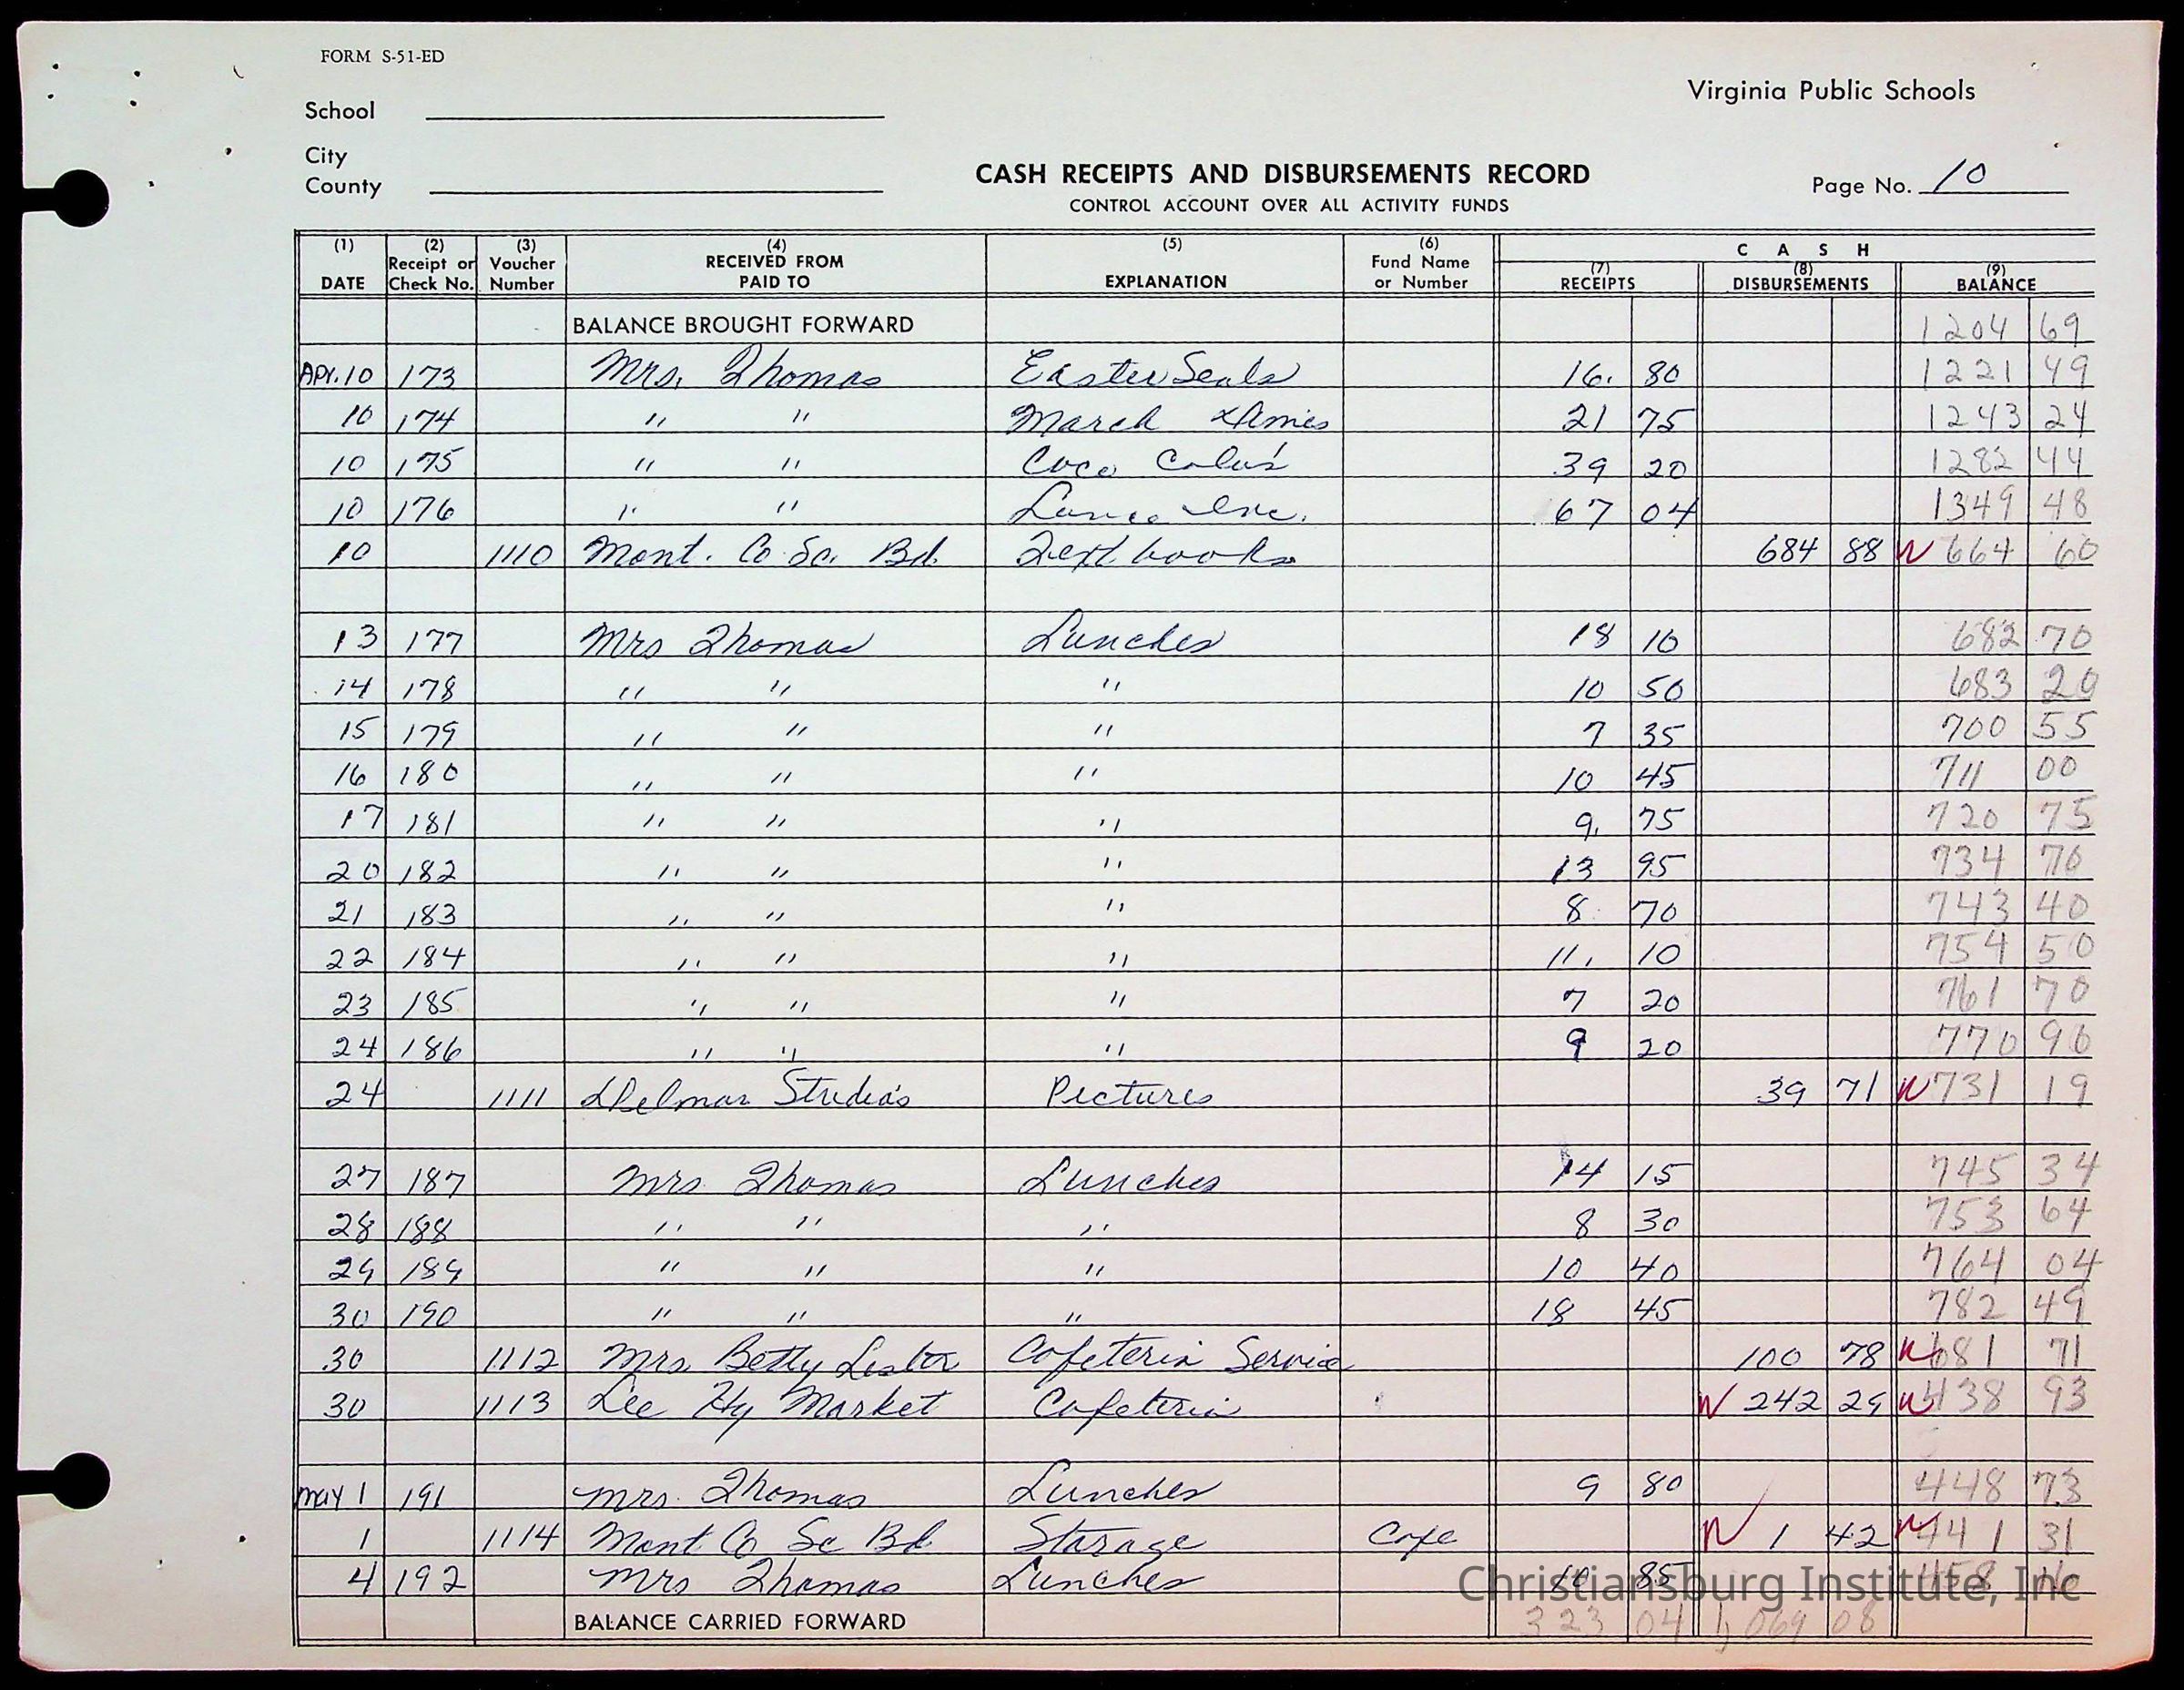 FORM S-51-ED
Virginia Public Schools
School
City
County
CASH RECEIPTS AND DISBURSEMENTS RECORD
CONTROL ACCOUNT OVER ALL ACTIVITY FUNDS
Page No. 10
(1) DATE (2) Receipt or Check No. (3) Voucher Number (4) RECEIVED FROM PAID TO (5) EXPLANATION (6) Fund Name or Number CASH (7) RECEIPTS (8) DISBURSEMENTS (9) BALANCE
BALANCE BROUGHT FORWARD 1204 69
Apr. 10 173 Mrs. Thomas Easter Seals 16. 80 1221 49
10 174 " " March Dimes 21 75 1243 24
10 175 " " Coco Cola's 39 20 1282 44
10 176 " " Lance Inc. 67 04 1349 48
10 1110 Mont. Co Sc. Bd. Textbooks 684 88 664 60
13 177 Mrs Thomas Lunches 18 10 682 70
14 178 " " " 10 50 683 20
15 179 " " " 7 35 700 55
16 180 " " " 10 45 711 00
17 181 " " " 9. 75 720 75
20 182 " " " 13 95 734 70
21 183 " " " 8 70 743 40
22 184 " " " 11. 10 754 50
23 185 " " " 7 20 761 70
24 186 " " " 9 20 770 90
24 1111 Delmar Studio's Pictures 39 71 731 19
27 187 Mrs Thomas Lunches 14 15 745 34
28 188 " " " 8 30 753 64
29 189 " " " 10 40 764 04
30 190 " " " 18 45 782 49
30 1112 Mrs Betty Lester Cafeteria Service 100 78 681 71
30 1113 Lee Hy Market Cafeteria 242 29 438 93
May 1 191 Mrs. Thomas Lunches 9 80 448 73
1 1114 Mont Co Sc Bd Storage Cafe 1 42 441 31
4 192 Mrs Thomas Lunches 10 85 458
BALANCE CARRIED FORWARD 323 04 1,069 08
Christiansburg Institute, Inc